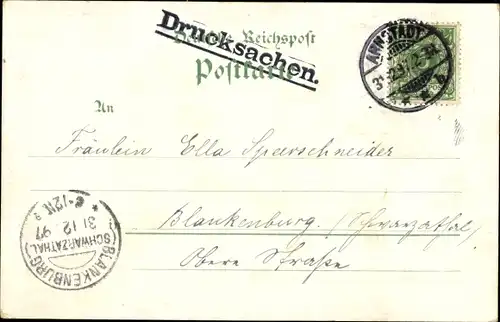 Deutsche Reichspost
Drucksachen.
Postkarte
ARNSTADT
An
Fräulein Ella Speerschneider
Blankenburg. (Schwarzathal)
Obere Straße
BLANKENBURG
(SCHWARZATHAL)
31 12 97